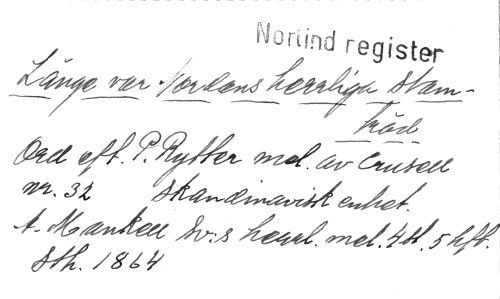 Norlind register
Länge var Nordens herrliga stam-
träd
Ord eft. P. Rytter mel. av Crusell
nr. 32 skandinavisk enhet.
A. Mankell Sv:s 4st. 5 hft.
Sth. 1864